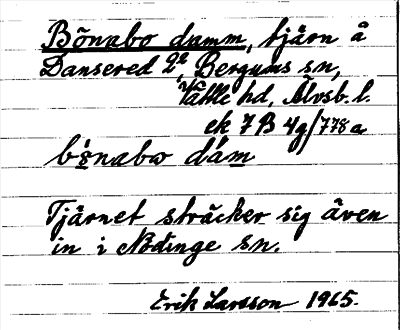 Bönabo damm, tjärn å
Dansered 2², Bergums sn,
Vättle hd, Älvsb. l.
ek 7B 4g/778a
Tjärnet sträcker sig även
in i Nödinge sn.
Erik Larsson 1965.